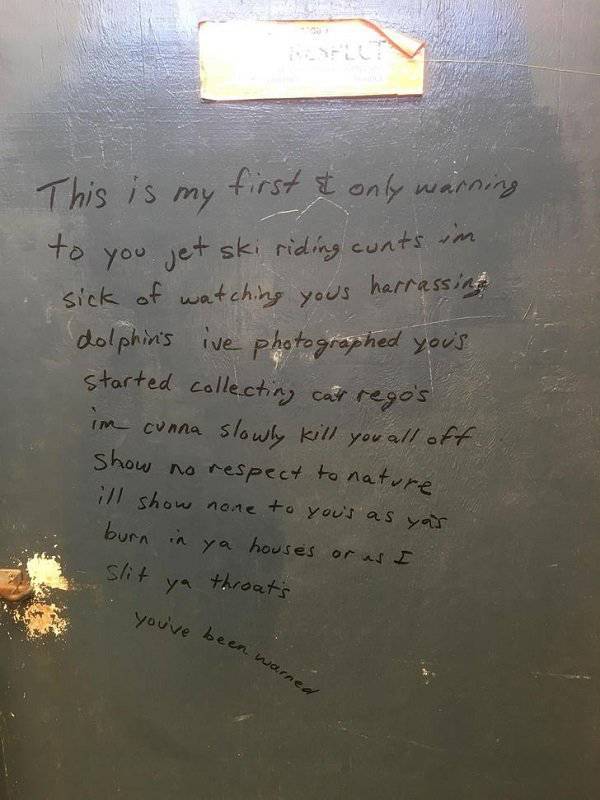 RESPECT
This is my first & only warning
to you jet ski riding cunts im
sick of watching yous harrassing
dolphin's ive photographed you's
started collecting car rego's
im cunna slowly kill you all off
show no respect to nature
ill show none to you's as ya's
burn in ya houses or as I
slit ya throat's
you've been warned